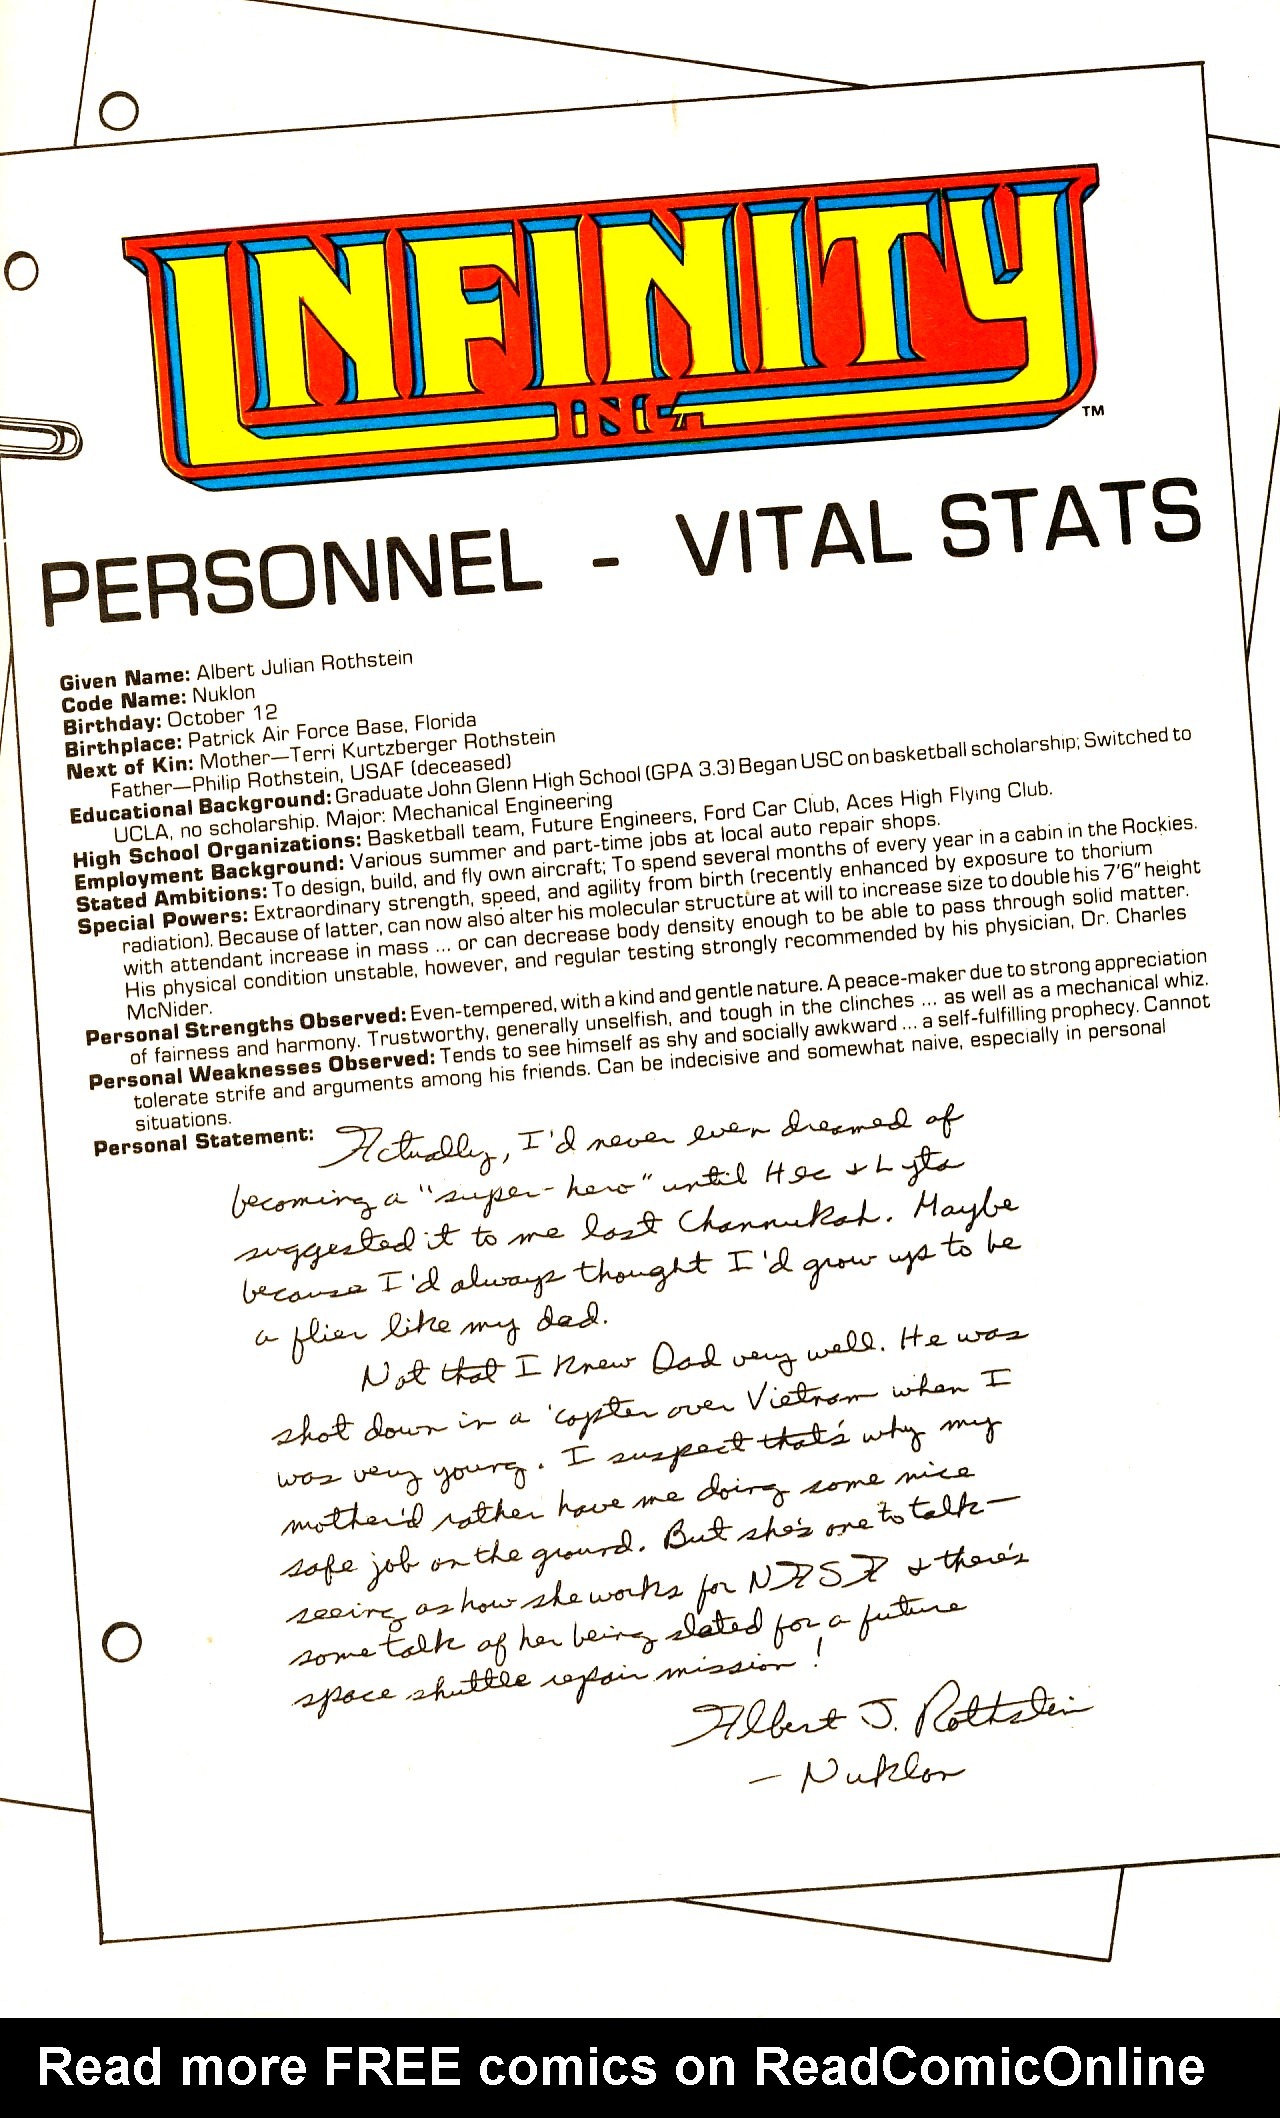 INFINITY
INC.
TM
PERSONNEL - VITAL STATS
Given Name: Albert Julian Rothstein
Code Name: Nuklon
Birthday: October 12
Birthplace: Patrick Air Force Base, Florida
Next of Kin: Mother—Terri Kurtzberger Rothstein
Father—Philip Rothstein, USAF (deceased)
Educational Background: Graduate John Glenn High School (GPA 3.3) Began USC on basketball scholarship; Switched to
UCLA, no scholarship. Major: Mechanical Engineering
High School Organizations: Basketball team, Future Engineers, Ford Car Club, Aces High Flying Club.
Employment Background: Various summer and part-time jobs at local auto repair shops.
Stated Ambitions: To design, build, and fly own aircraft; To spend several months of every year in a cabin in the Rockies.
Special Powers: Extraordinary strength, speed, and agility from birth (recently enhanced by exposure to thorium
radiation). Because of latter, can now also alter his molecular structure at will to increase size to double his 7'6" height
with attendant increase in mass ... or can decrease body density enough to be able to pass through solid matter.
His physical condition unstable, however, and regular testing strongly recommended by his physician, Dr. Charles
McNider.
Personal Strengths Observed: Even-tempered, with a kind and gentle nature. A peace-maker due to strong appreciation
of fairness and harmony. Trustworthy, generally unselfish, and tough in the clinches ... as well as a mechanical whiz.
Personal Weaknesses Observed: Tends to see himself as shy and socially awkward ... a self-fulfilling prophecy. Cannot
tolerate strife and arguments among his friends. Can be indecisive and somewhat naive, especially in personal
situations.
Personal Statement: Actually, I'd never even dreamed of
becoming a "super-hero" until Hec & Lyta
suggested it to me last Channukah. Maybe
because I'd always thought I'd grow up to be
a flier like my dad.
Not that I knew Dad very well. He was
shot down in a 'copter over Vietnam when I
was very young. I suspect that's why my
mother'd rather have me doing some nice
safe job on the ground. But she's one to talk—
seeing as how she works for NASA & there's
some talk of her being slated for a future
space shuttle repair mission!
Albert J. Rothstein
— Nuklon
Read more FREE comics on ReadComicOnline